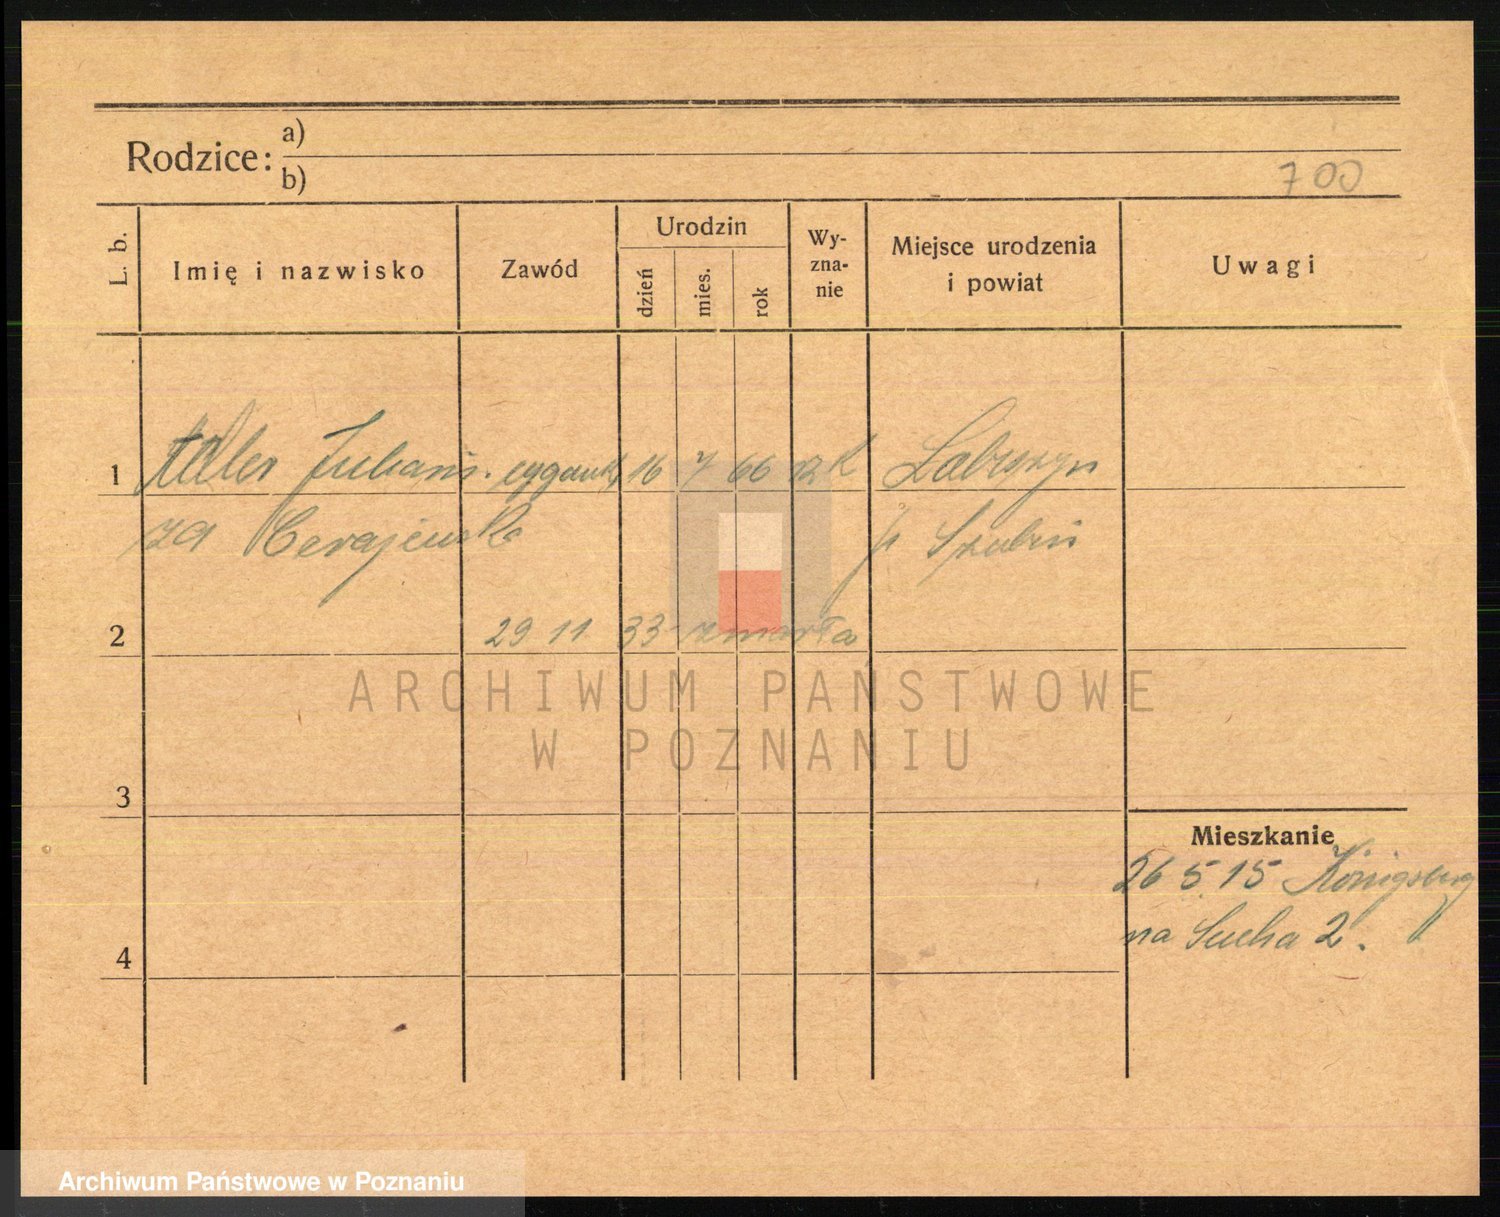 Rodzice: a)
b)
700
L. b.
Imię i nazwisko
Zawód
Urodzin
dzień
mies.
rok
Wy-
zna-
nie
Miejsce urodzenia
i powiat
Uwagi
1 Adler Juliann. 16 7 66 K Labiszyn
p Szubin
2 29 11 33 zmarła
ARCHIWUM PAŃSTWOWE
W POZNANIU
3
Mieszkanie
26 5 15 Königsberg
na Sucha 2.
4
Archiwum Państwowe w Poznaniu